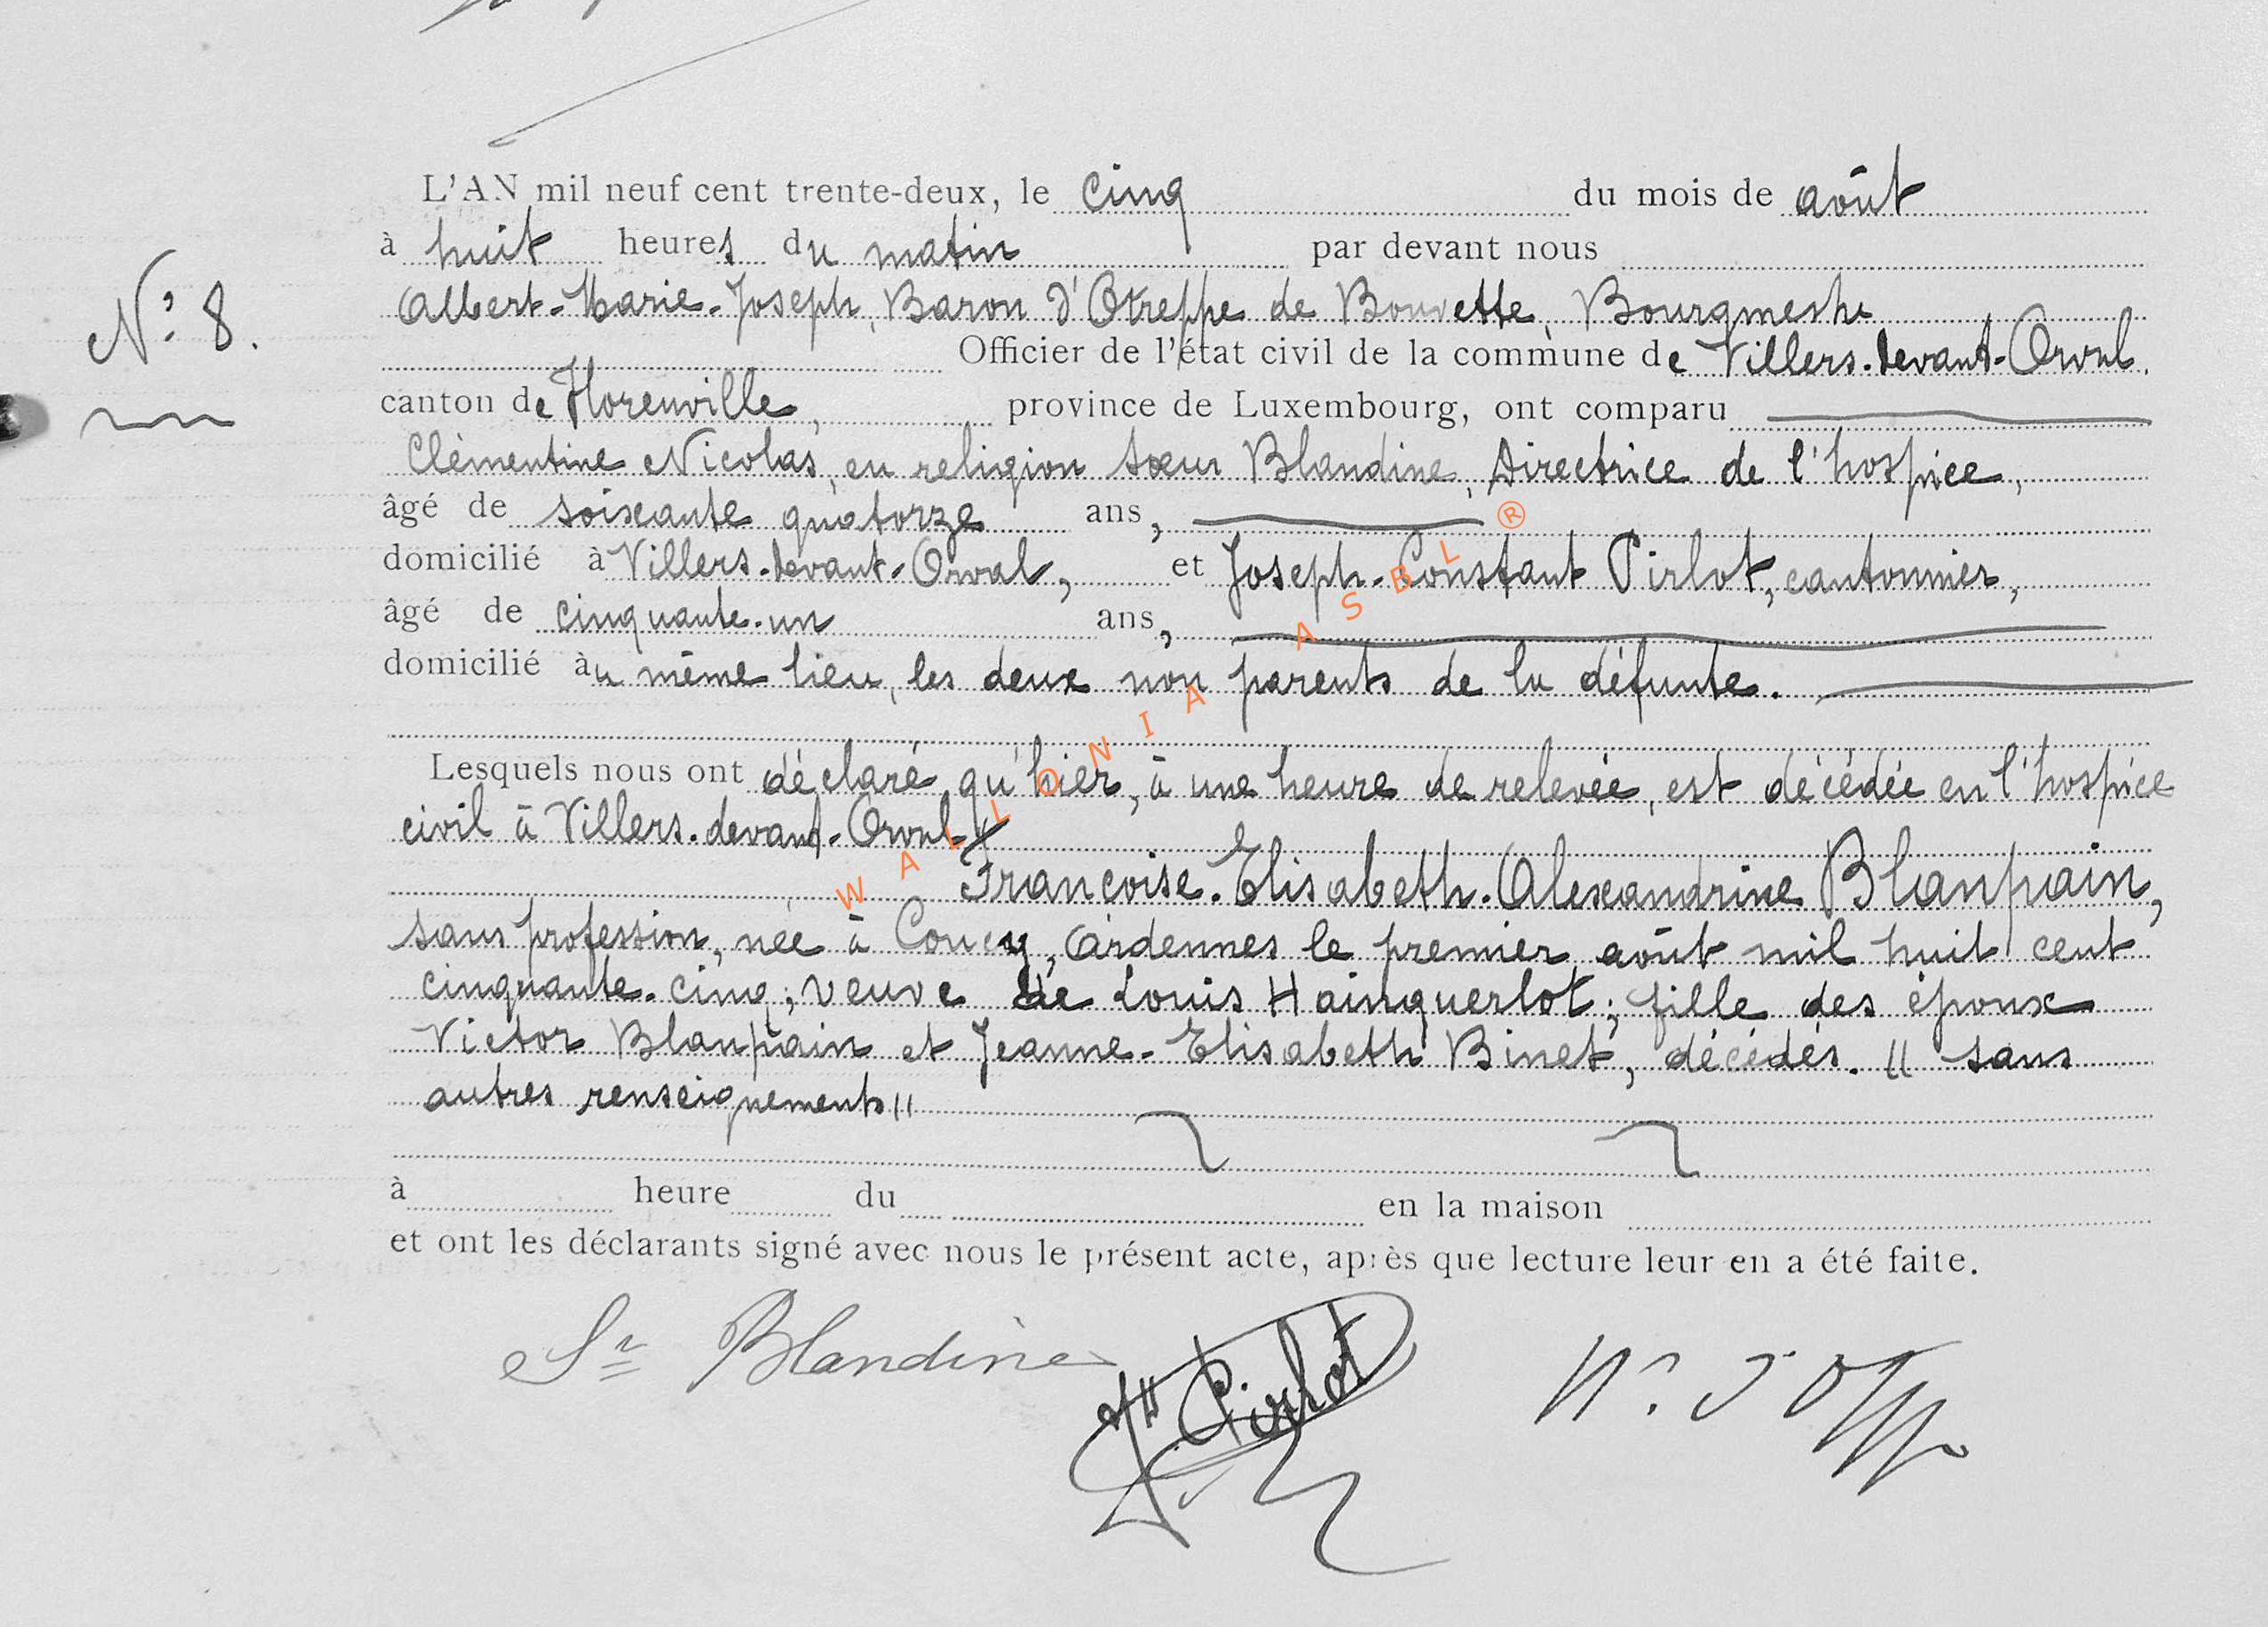 L'AN mil neuf cent trente-deux, le cinq du mois de août
à huit heures du matin par devant nous
N° 8.
Albert-Marie-Joseph, Baron d'Otreppe de Bouvette, Bourgmestre
Officier de l'état civil de la commune de Villers-devant-Orval.
canton de Florenville, province de Luxembourg, ont comparu
Clémentine Nicolas, en religion sœur Blandine, Directrice de l'hospice,
âgé de soixante quatorze ans,
domicilié à Villers-devant-Orval, et Joseph-Constant Pirlot, cantonnier,
âgé de cinquante-un ans,
domicilié au même lieu, les deux non parents de la défunte.
Lesquels nous ont déclaré qu'hier, à une heure de relevée, est décédée en l'hospice
civil à Villers-devant-Orval
Françoise-Elisabeth-Alexandrine Blanpain,
sans profession, née à Coucy, Ardennes le premier août mil huit cent
cinquante-cinq; veuve de Louis Hainguerlot; fille des époux
Victor Blanpain et Jeanne-Elisabeth Binet, décédés. " sans
autres renseignements "
à heure du en la maison
et ont les déclarants signé avec nous le présent acte, après que lecture leur en a été faite.
Sr Blandine
Jh Pirlot
WALLONIA ASBL ®